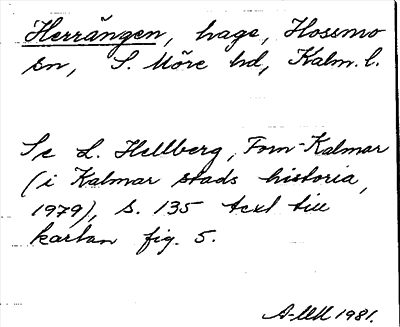 Herrängen, hage, Hossmo
sn, S. Möre hd, Kalm. l.
Se L. Hellberg, Forn-Kalmar
(i Kalmar stads historia,
1979), s. 135 text till
kartan fig. 5.
1981.